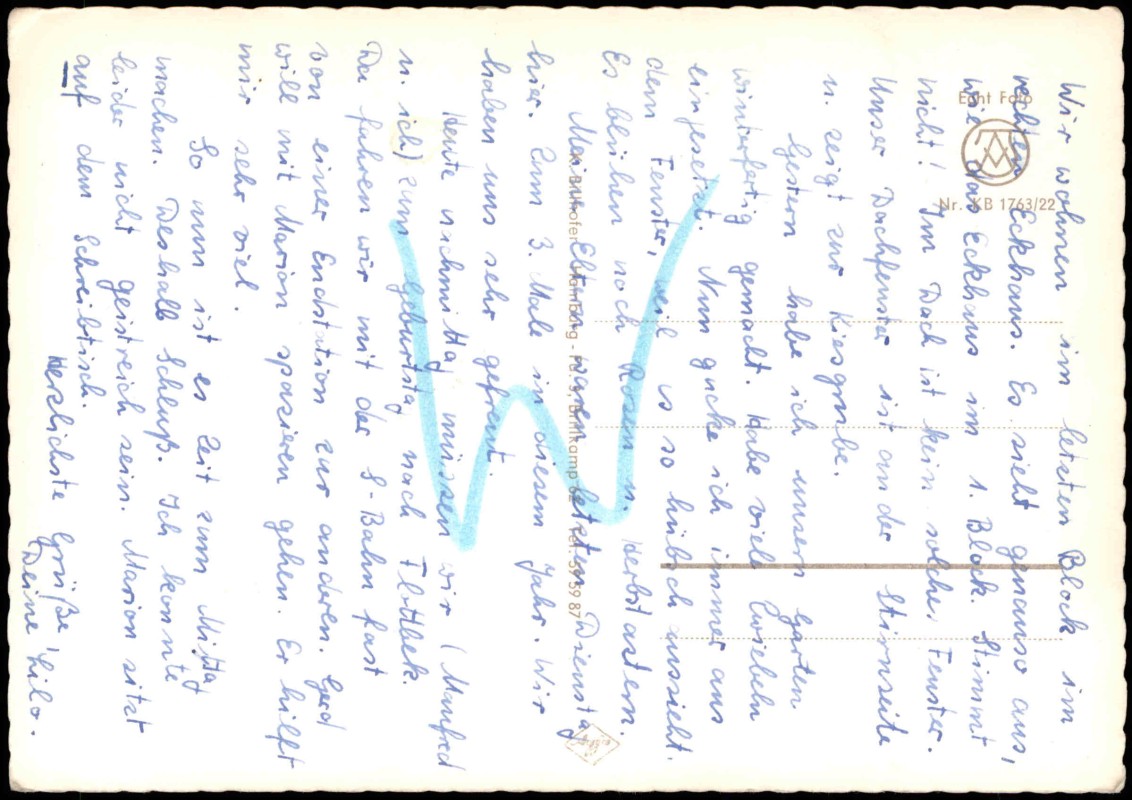 Wir wohnen im letzten Block im
rechten Eckhaus. Es sieht genauso aus,
wie das Eckhaus im 1. Block. Stimmt
nicht! Im Dach ist kein solches Fenster.
Unser Dachfenster ist an der Stirnseite
u. zeigt zur Kiesgrube.
Gestern habe ich unsern Garten
winterfertig gemacht. Habe viele Zwiebeln
eingesetzt. Nun gucke ich immer aus
dem Fenster, weil es so hübsch aussieht.
Es blühen noch Rosen u. Herbstastern.
Meine Eltern waren letzten Dienstag
hier. Zum 3. Male in diesem Jahr. Wir
haben uns sehr gefreut.
Heute nachmittag müssen wir (Manfred
u. ich) zum Geburtstag nach Flottbek.
Da fahren wir mit der S-Bahn fast
von einer Endstation zur anderen. Gerd
will mit Marion spazieren gehen. Er hilft
mir sehr viel.
So nun ist es Zeit zum Mittag
machen. Deshalb Schluß. Ich konnte
leider nicht geistreich sein. Marion sitzt
auf dem Schreibtisch.
Herzlichste Grüße,
Deine Lilo.
Echt Foto
Nr. KB 1763/22
Hamburg
Brinkkamp
Tel. 59 59 87
W